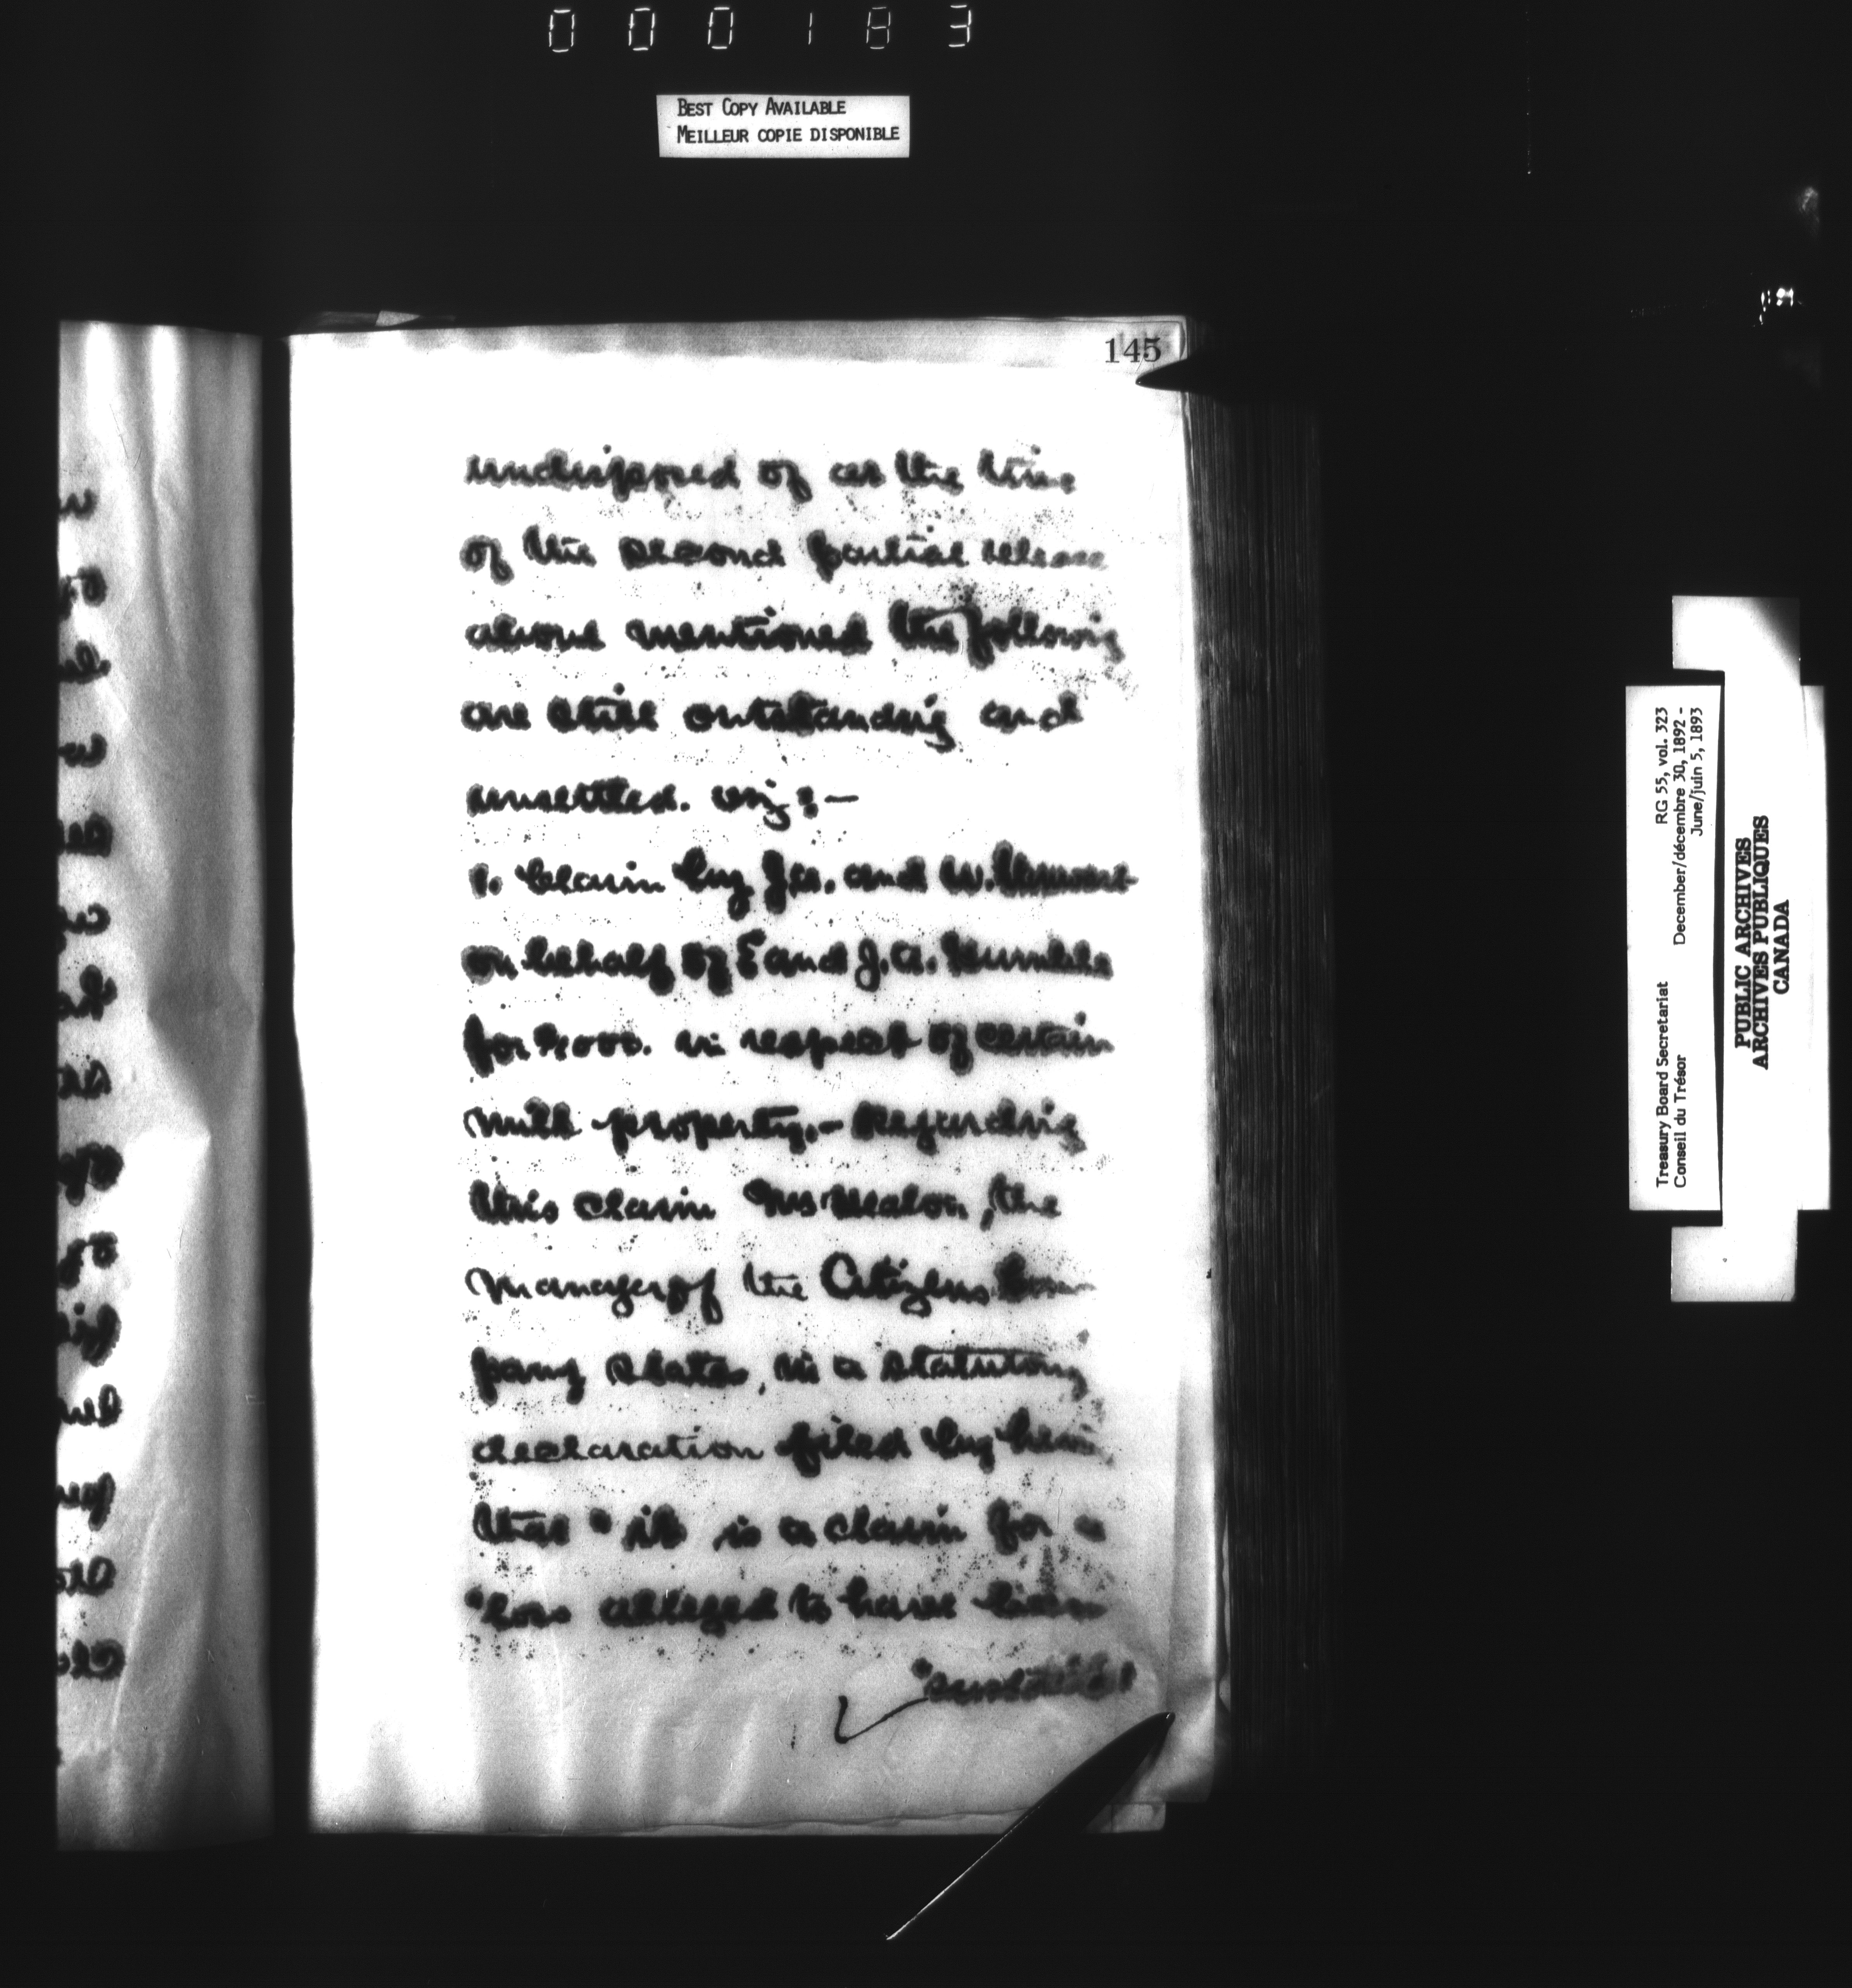 000183
BEST COPY AVAILABLE
MEILLEUR COPIE DISPONIBLE
145
undisposed of at the time
of the second partial release
above mentioned the following
are still outstanding and
unsettled. viz:—
1. Claim by and W.
on behalf of E and J. A.
for in respect of certain
mill property.— Regarding
this claim the
manager of the Citizens Com
pany states, in a statutory
declaration filed by him
that "it is a claim for a
"loss alleged to have been
"sustained
Treasury Board Secretariat RG 55, vol. 323
Conseil du Trésor December/décembre 30, 1892 -
June/juin 5, 1893
PUBLIC ARCHIVES
ARCHIVES PUBLIQUES
CANADA